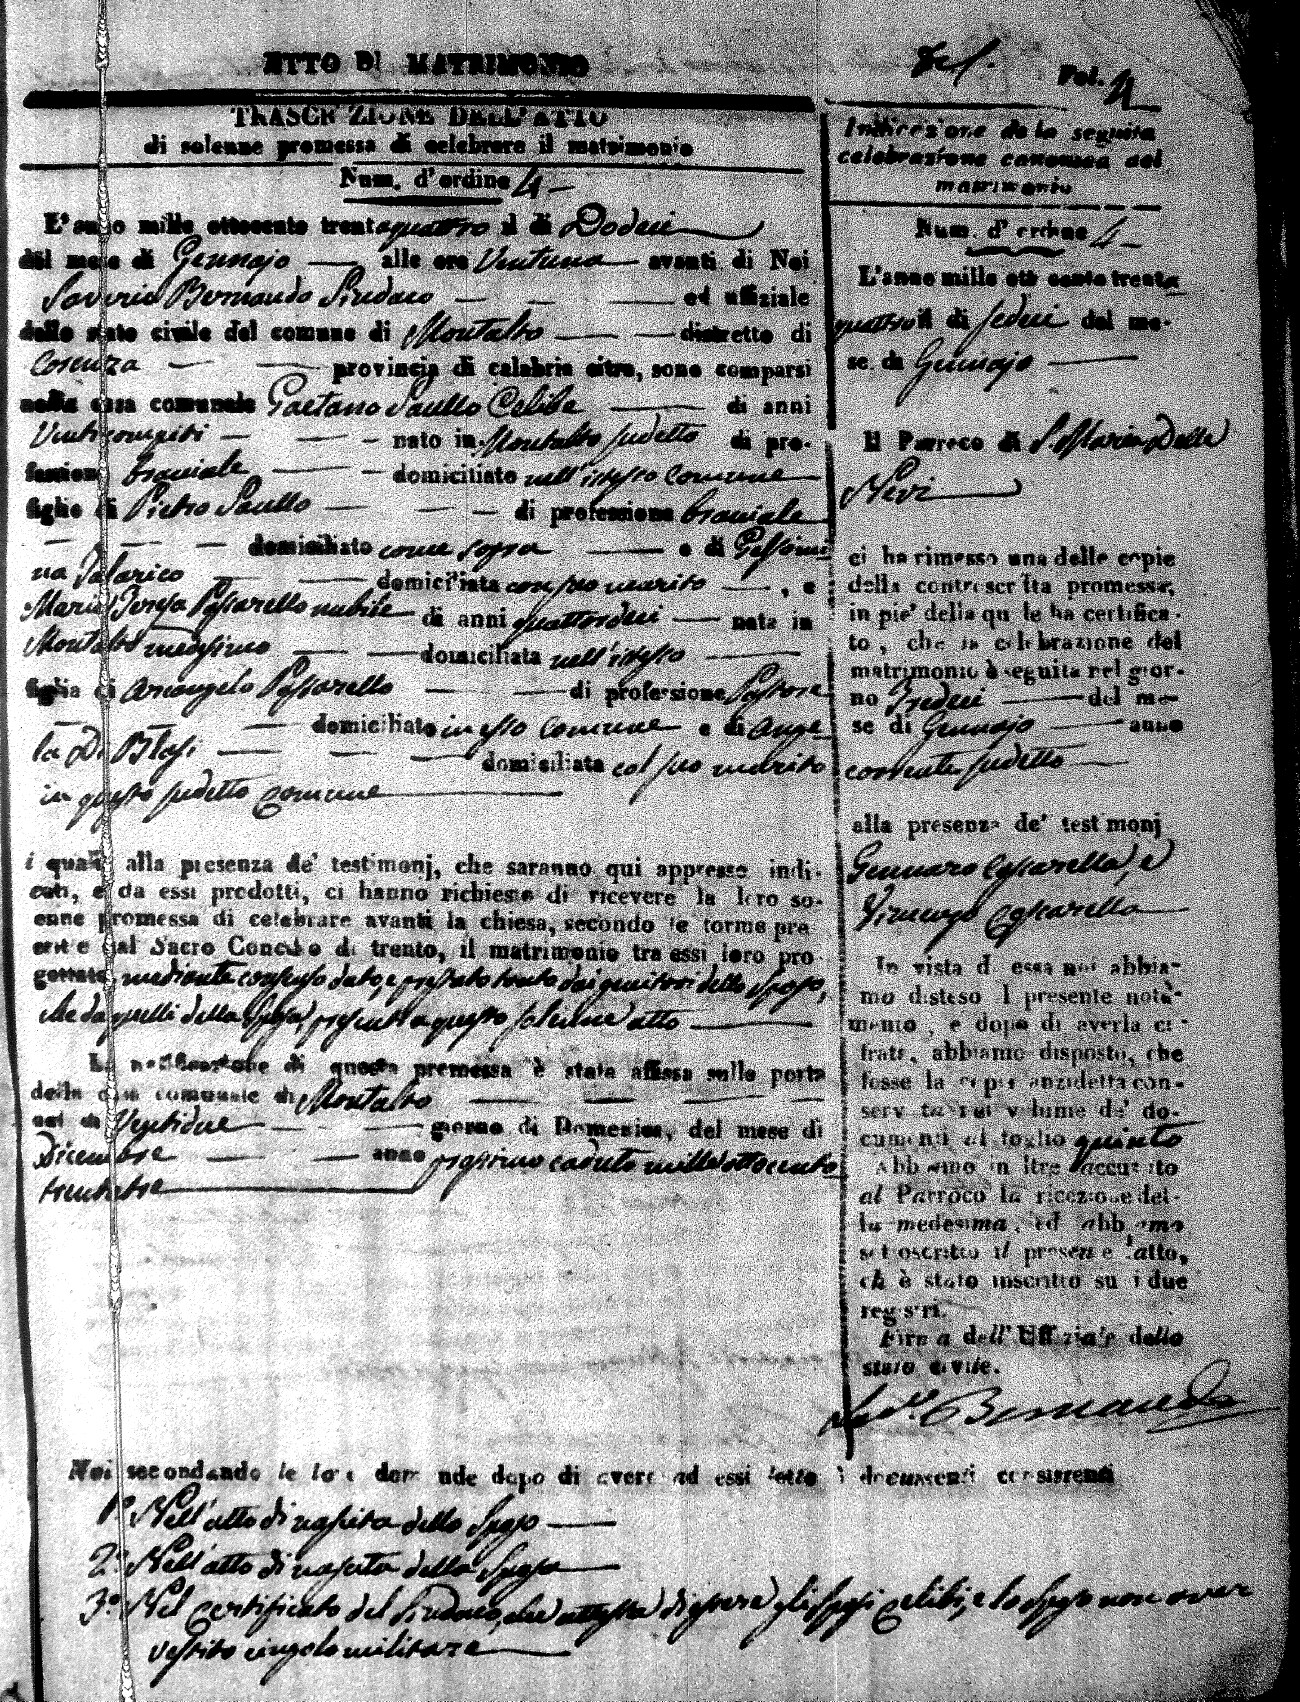 ATTO DI MATRIMONIO
Fol. 4
TRASCRIZIONE DELL'ATTO
di solenne promessa di celebrare il matrimonio
Num. d'ordine 4
L'anno mille ottocento trentaquattro il di Dodeci
del mese di Gennajo alle ore Ventuna avanti di Noi
Saverio Bernaudo Sindaco ed uffiziale
dello stato civile del comune di Montalto distretto di
Cosenza provincia di calabria citra, sono comparsi
nella casa comunale Gaetano Saullo Celibe di anni
Venticompiti nato in Montalto sudetto di pro-
fessione braciale domiciliato nell'istesso comune
figlio di Pietro Saullo di professione braciale
domiciliato come sopra e di Gelsomi
na Talarico domiciliata con suo marito , e
Maria Teresa Passarello nubile di anni quattordeci nata in
Montalto medesimo domiciliata nell'istesso
figlia di Arcangelo Passarello di professione Pastore
domiciliato in esso comune e di Ange
la Di Blasi domiciliata col suo marito
in questo sudetto comune
i quali alla presenza de' testimonj, che saranno qui appresso indi-
cati, e da essi prodotti, ci hanno richiesto di ricevere la loro so-
enne promessa di celebrare avanti la chiesa, secondo le forme pre
scritte dal Sacro Concilio di trento, il matrimonio tra essi loro pro
gettato, mediante consenso dato, e prestato tanto dai genitori dello sposo,
che da quelli della sposa, presenti a questo solenne atto
La notificazione di questa promessa è stata affissa sulla porta
della casa comunale di Montalto
nel di Ventidue giorno di Domenica, del mese di
Dicembre anno prossimo caduto mille ottocento
trentatre
Indicazione della seguita
celebrazione canonica del
matrimonio
Num. d'ordine 4
L'anno mille ottocento trenta
quattro il di sedeci del me-
se di Gennajo
Il Parroco di S. Maria Della
Nevi
ci ha rimesso una delle copie
della controscritta promessa,
in pie' della quale ha certifica-
to, che la celebrazione del
matrimonio è seguita nel gior-
no Tredeci del me-
se di Gennajo anno
corrente sudetto
alla presenza de' testimonj
Gennaro Passarella, e
Vincenzo Passarello
In vista di essa noi abbia-
mo disteso il presente notà-
mento, e dopo di averla ci-
frata, abbiamo disposto, che
fosse la copia anzidetta con-
servata nel volume de' do-
cumenti al foglio quinto
Abbiamo inoltre accusato
al Parroco la ricezione del-
la medesima, ed abbiamo
sottoscritto il presente atto,
ch è stato inscritto su i due
registri.
Firma dell'Uffiziale dello
stato civile.
Sav.o Bernaudo
Noi secondando le loro domande dopo di avere ad essi letto i documenti consistenti
1º Nell'atto di nascita dello Sposo
2º Nell'atto di nascita della Sposa
3º Nel certificato del Sindaco, che attesta di essere gli sposi celibi, e lo sposo non aver
vestito cingolo militare